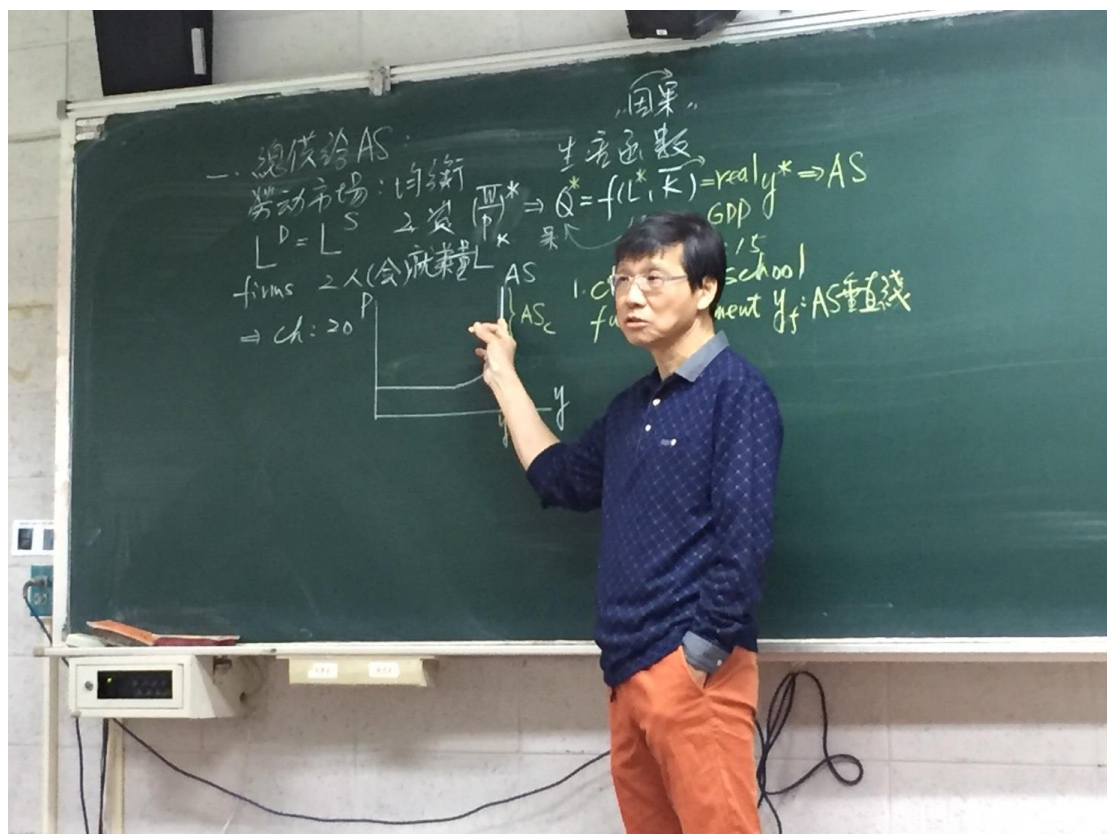 "因果"
一. 總供給AS:
生產函數
勞动市場: 均衡
L^D = L^S 工資 (W/P)^* ⇒ Q^* = f(L^*, K̄) = real y^* ⇒ AS
GDP
果
firms 工人(会)就業量L
⇒ ch: 20
P
AS
} AS_c
y
1. c school
fu ment y_f: AS垂直綫